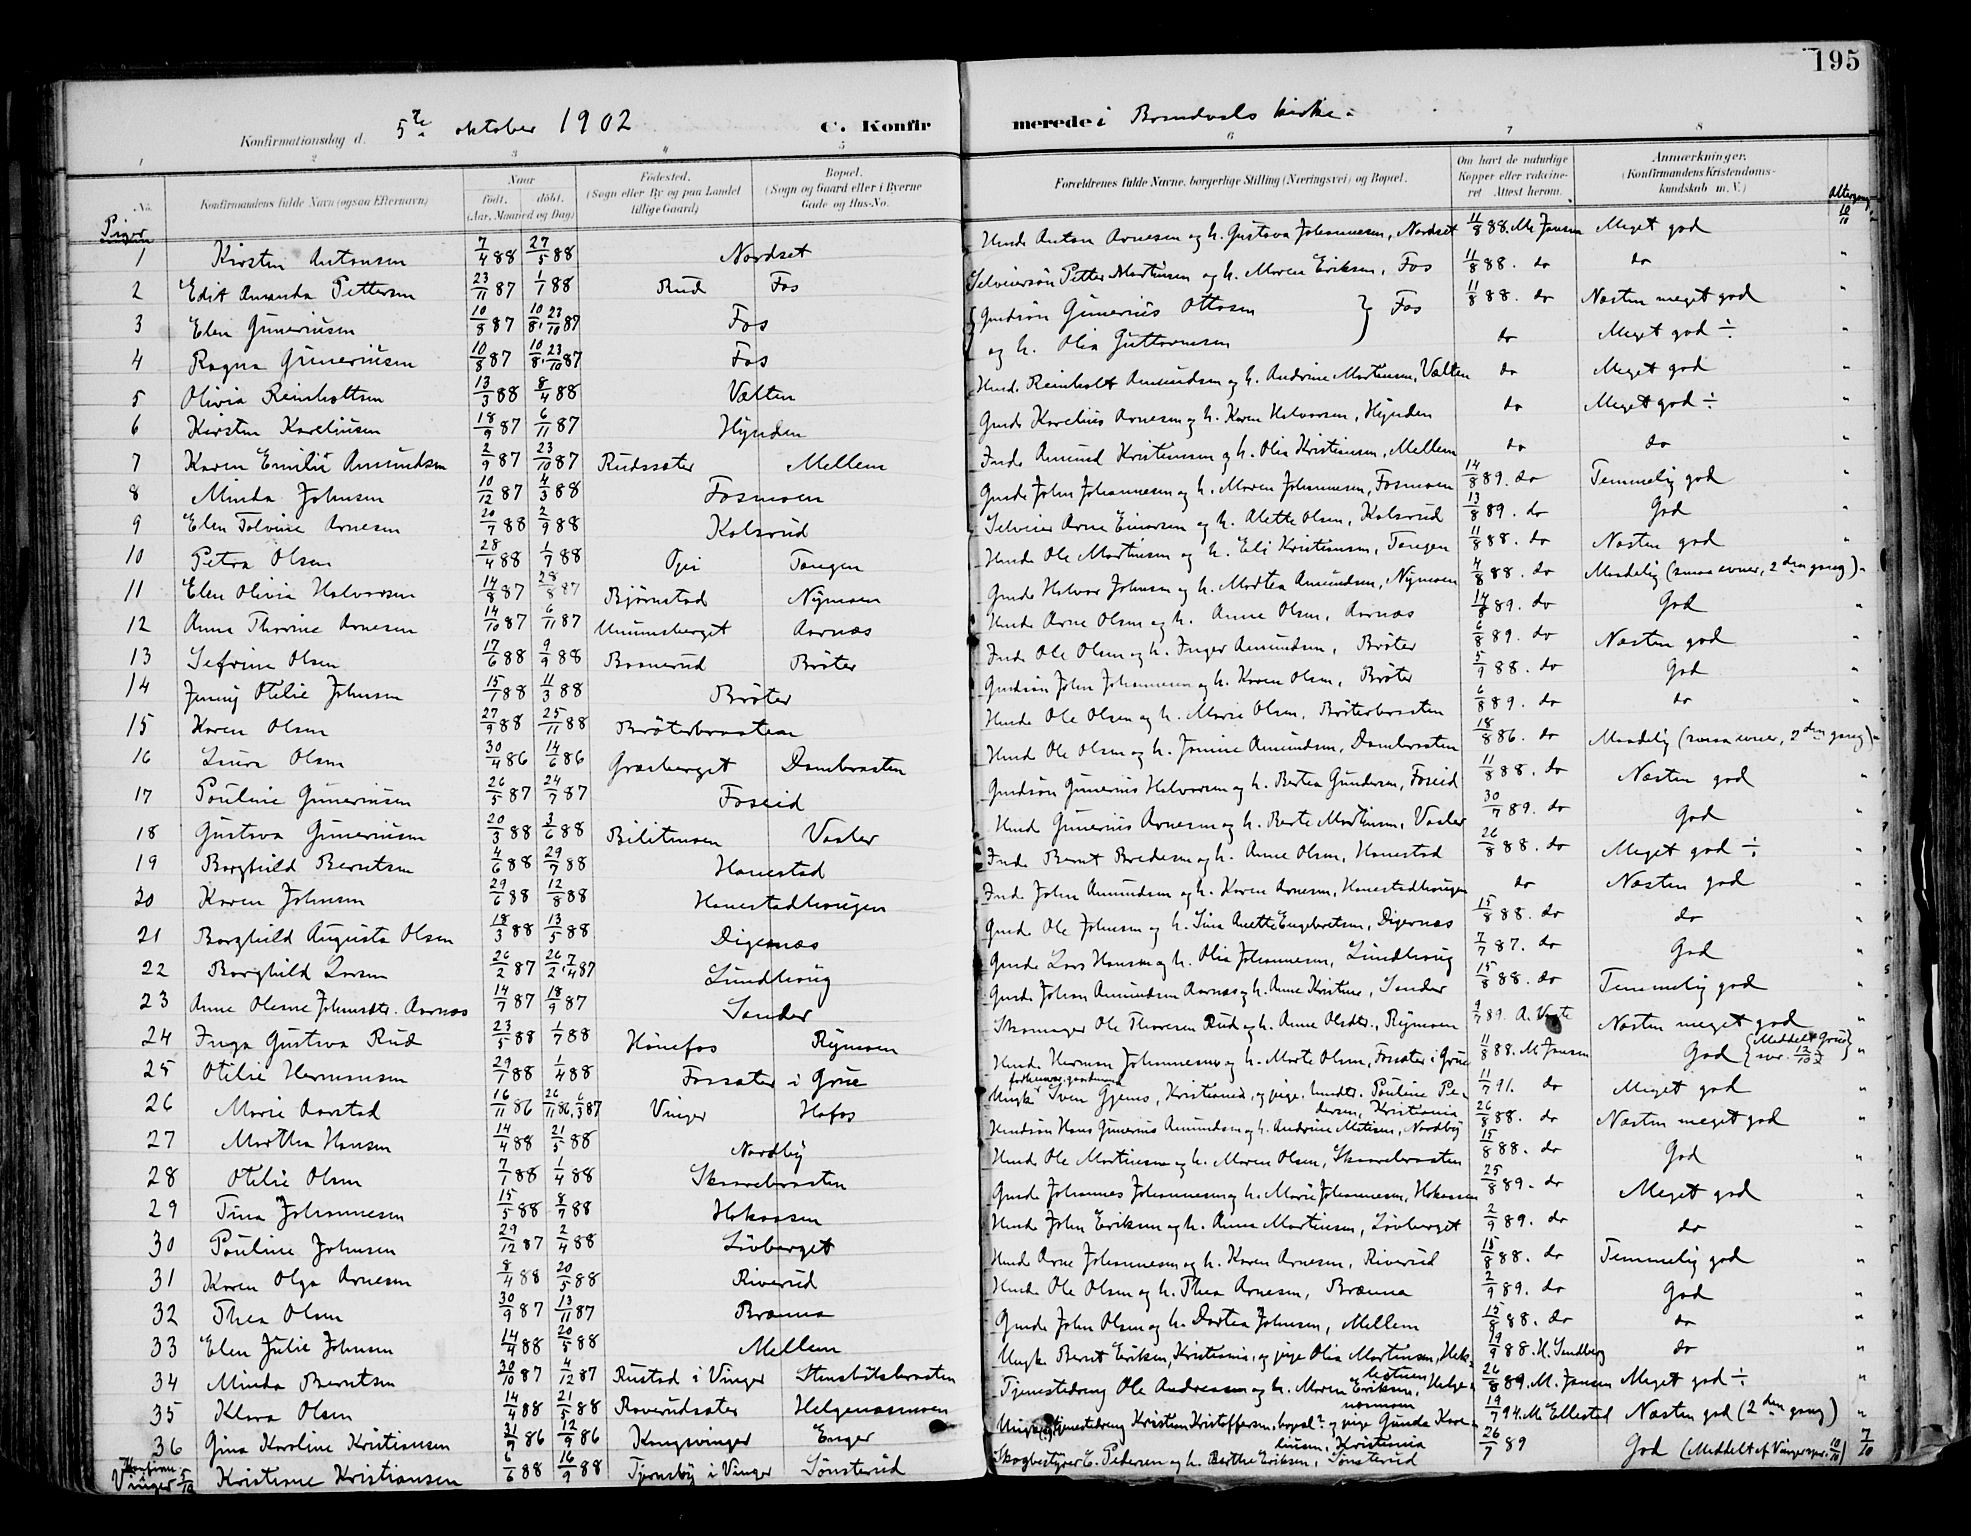 195
Konfirmationsdag d. 5te oktober 1902 C. Konfirmerede i Brandvals kirke.
1 2 3 4 5 6 7 8
No. Konfirmandens fulde Navn (ogsaa Efternavn) Naar født. døbt. (Aar, Maaned og Dag) Fødested. (Sogn eller By og paa Landet tillige Gaard) Bopæl. (Sogn og Gaard eller i Byerne Gade og Hus-No. Forældrenes fulde Navne, borgerlige Stilling (Næringsvei) og Bopæl. Om havt de naturlige Kopper eller vaccineret. Attest herom. Anmærkninger. (Konfirmandens Kristendomskundskab m. V.) Altergang
Piger 10/10
1 Kirsten Antonsen 7/4 88 27/5 88 Nordset Husmd. Anton Arnesen og h. Gustava Johannesen, Nordset 11/8 88. M. Jansen Meget god "
2 Edit Amanda Pettersen 23/11 87 1/1 88 Rud Fos Selveiersøn Petter Martinsen og h. Maren Eriksen, Fos 11/8 88. do do "
3 Elen Guneriusen 10/8 87 10/8, 23/10 87 Fos Gmdsøn Gunerius Ottosen } Fos 11/8 88. do Næsten meget god "
4 Ragna Guneriusen 10/8 87 10/8, 23/10 87 Fos og h. Olia Guttormsen do Meget god ÷ "
5 Olivia Reinholtsen 13/3 88 8/4 88 Vælten Husmd. Reinholt Amundsen og h. Andrine Martinsen, Vælten do Meget god "
6 Kirsten Kareliusen 18/9 87 6/11 87 Hynden Gmd. Karelius Arnesen og h. Karen Halvorsen, Hynden do Meget god ÷ "
7 Karen Emilie Amundsen 2/9 87 23/10 87 Rudssæter Mellem Inds. Amund Kristiansen og h. Olia Kristiansen, Mellem do do "
8 Minda Johnsen 10/12 87 4/3 88 Fosmoen Gmd. John Johannesen og h. Maren Johannesen, Fosmoen 14/8 89. do Temmelig god "
9 Elen Tolvine Arnesen 20/7 88 2/9 88 Kolsrud Selveier Arne Einarsen og h. Alette Olsen, Kolsrud 13/8 89. do God "
10 Petra Olsen 28/4 88 1/7 88 Opei Tangen Husmd. Ole Martinsen og h. Eli Kristiansen, Tangen 11/8 88. do Næsten god "
11 Elen Olivia Halvorsen 14/8 87 28/8 87 Bjørnstad Nymoen Gmd. Halvor Johnsen og h. Martea Amundsen, Nymoen 4/8 88. do Maadelig (smaa evner, 2den gang) "
12 Anna Thorine Arnesen 14/10 87 6/11 87 Unumsberget Aarnæs Husmd. Arne Olsen og h. Anne Olsen, Aarnæs 14/8 89. do God "
13 Sefrine Olsen 17/6 88 9/9 88 Basnerud Brøter Inds. Ole Olsen og h. Inger Amundsen, Brøter 6/8 89. do Næsten god "
14 Jenny Otilie Johnsen 15/1 88 11/3 88 Brøter Gmdsøn John Johannesen og h. Karen Olsen, Brøter 5/9 88. do God "
15 Karen Olsen 27/9 88 25/11 88 Brøterbraaten Husmd. Ole Olsen og h. Marie Olsen, Brøterbraaten 6/8 89. do do "
16 Laura Olsen 30/4 86 14/6 86 Græsberget Dambraaten Husmd. Ole Olsen og h. Jonine Amundsen, Dambraaten 18/8 86. do Maadelig (smaa evner, 2den gang) "
17 Pouline Guneriusen 26/5 87 24/7 87 Foseid Gmdsøn Gunerius Halvorsen og h. Bertea Gundersen, Foseid 11/8 88. do Næsten god "
18 Gustava Guneriusen 20/3 88 3/6 88 Bilitmoen Vasler Husmd. Gunerius Arnesen og h. Berte Martinsen, Vasler 30/7 89. do God "
19 Borghild Berntsen 4/6 88 29/7 88 Hanestad Inds. Bernt Bredesen og h. Anne Olsen, Hanestad 26/8 88. do Meget god ÷ "
20 Karen Johnsen 29/6 88 12/8 88 Hanestadhaugen Inds. John Amundsen og h. Karen Arnesen, Hanestadhaugen do Næsten god "
21 Borghild Augusta Olsen 18/3 88 13/5 88 Digernæs Gmd. Ole Johnsen og h. Lina Anette Engebretsen, Digernæs 15/8 88. do do "
22 Borghild Larsen 26/2 87 26/2, 7/4 87 Lundhaug Gmd. Lars Hansen og h. Olia Johannesen, Lundhaug 7/7 87. do God "
23 Anne Olesne Johansdtr. Aarnæs 14/7 87 18/9 87 Sander Gmd. Johan Amundsen Aarnæs og h. Anne Kristine, Sander 15/8 88. do Temmelig god
24 Inga Gustava Rud 23/5 88 1/7 88 Hønefos Rymoen Skomager Ole Thoresen Rud og h. Anne Olsdtr., Rymoen 9/7 89. A. Næsten meget god "
25 Otilie Hermansen 29/1 88 1/4 88 Fossæter i Grue Husmd. Herman Johannesen og h. Marte Olsen, Fossæter i Grue 11/8 88. M. Jansen God (Meddelt Grue "
26 Marie Aarstad 16/11 86 26/11 86, 6/3 87 Vinger Hofos Ungk. forhenv. gaardmand Sven Gjems, Kristiania, og pige, husdtr. Pouline Pedersen, Kristiania 11/7 91. do Meget god "
27 Martha Hansen 14/4 88 21/5 88 Nordby Husmdsøn Hans Gunerius Amundsen og h. Andrine Matisen, Nordby 26/8 88. do Næsten meget god "
28 Otilie Olsen 7/1 88 1/4 88 Skaarebraaten Husmd. Ole Martinsen og h. Maren Olsen, Skaarebraaten 15/8 88. do God "
29 Tina Johannesen 15/5 88 8/7 88 Hokaasen Gmd. Johannes Johannesen og h. Marie Johannesen, Hokaasen 25/8 89. do Meget god "
30 Pouline Johnsen 29/12 87 2/4 88 Livberget Husmd. John Eriksen og h. Anna Martinsen, Livberget 2/9 89. do do "
31 Karen Olga Arnesen 8/4 88 20/5 88 Riverud Husmd. Arne Johannesen og h. Karen Arnesen, Riverud 15/8 88. do Temmelig god "
32 Thea Olsen 30/9 87 13/11 87 Brænna Husmd. Ole Olsen og h. Thea Arnesen, Brænna 2/9 89. do God "
33 Elen Julie Johnsen 14/4 88 20/5 88 Mellem Gmd. John Olsen og h. Dortea Johnsen, Mellem 15/8 88. do do "
34 Minda Berntsen 30/10 87 4/12 87 Rustad i Vinger Stensbølsbraaten Ungk. Bernt Eriksen, Kristiania, og pige Olia Martinsen, 19/9 88. H. Sandberg do "
35 Klara Olsen 14/4 88 21/5 88 Raverudsæter Helgenæsmoen Tjenestedreng Ole Andreassen og h. Maren Eriksen, Helgenæsmoen 26/8 89. M. Jansen Meget god ÷ "
36 Gina Karoline Kristiansen 31/9 86 12/9 86 Kongsvinger Enger Ungk. tjenestedreng Kristian Kristoffersen, bopæl? og pige Gunda Karelinsen, Kristiania 19/7 94. M. Ellestad Næsten god (2den gang) "
Konfirm. Vinger 5/10 Kristine Kristiansen 6/6 88 16/9 88 Tjernsby i Vinger Sønsterud Skogbestyrer C. Pedersen og h. Berthe Eriksen, Sønsterud 26/7 89 God (Meddelt af Vinger spr. 10/10) 7/10